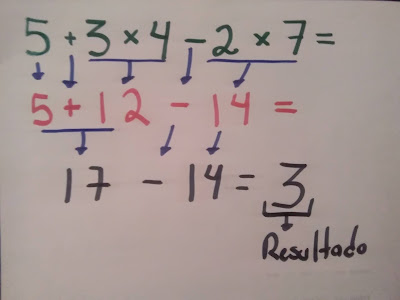 5 + 3 × 4 - 2 × 7 =
5 + 12 - 14 =
17 - 14 = 3
Resultado